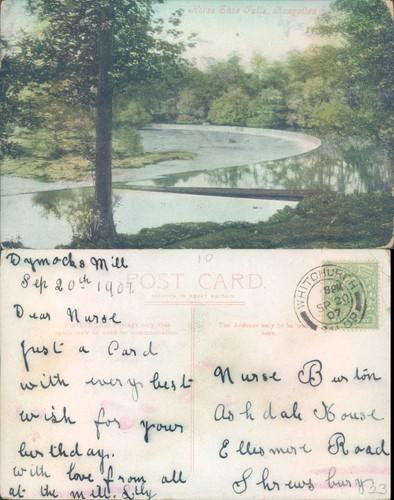 Horse Shoe Falls, Llangollen
Dymocks Mill
Sep 20th 1907
POST CARD.
Dear Nurse
The Address only to be written here.
just a Card
with every best
wish for your
birthday.
with love from all
at the Mill. Lily
WHITCHURCH
SP 20
07
SALOP
Nurse Burton
Ashdale House
Ellesmere Road
Shrewsbury
10
23